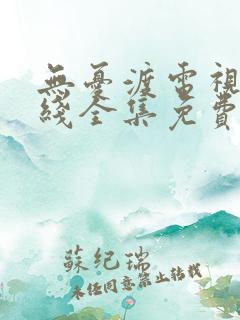 無憂渡電視
綫全集免費
蘇紀瑞
未經同意禁止轉載